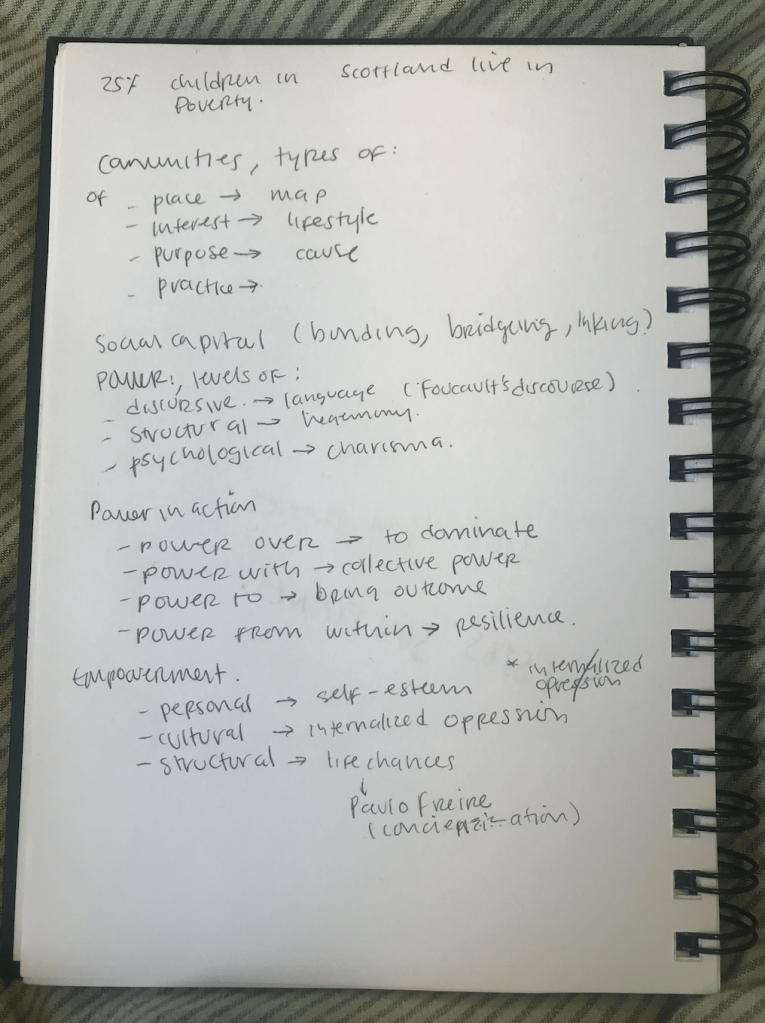 25% children in Scotland live in
Poverty.
Communities, types of:
of - place → map
- interest → lifestyle
- purpose → cause
- practice →
Social capital (bonding, bridgeing, linking)
Power:, levels of:
- discursive. → language (Foucault's discourse).
- structural → hegemony.
- psychological → charisma.
Power in action
- power over → to dominate
- power with → collective power
- power to → bring outcome
- power from within → resilience.
Empowerment.
* internalized
opression
- personal → self-esteem
- cultural → internalized oppression
- structural → life chances
↓
Paulo Freire